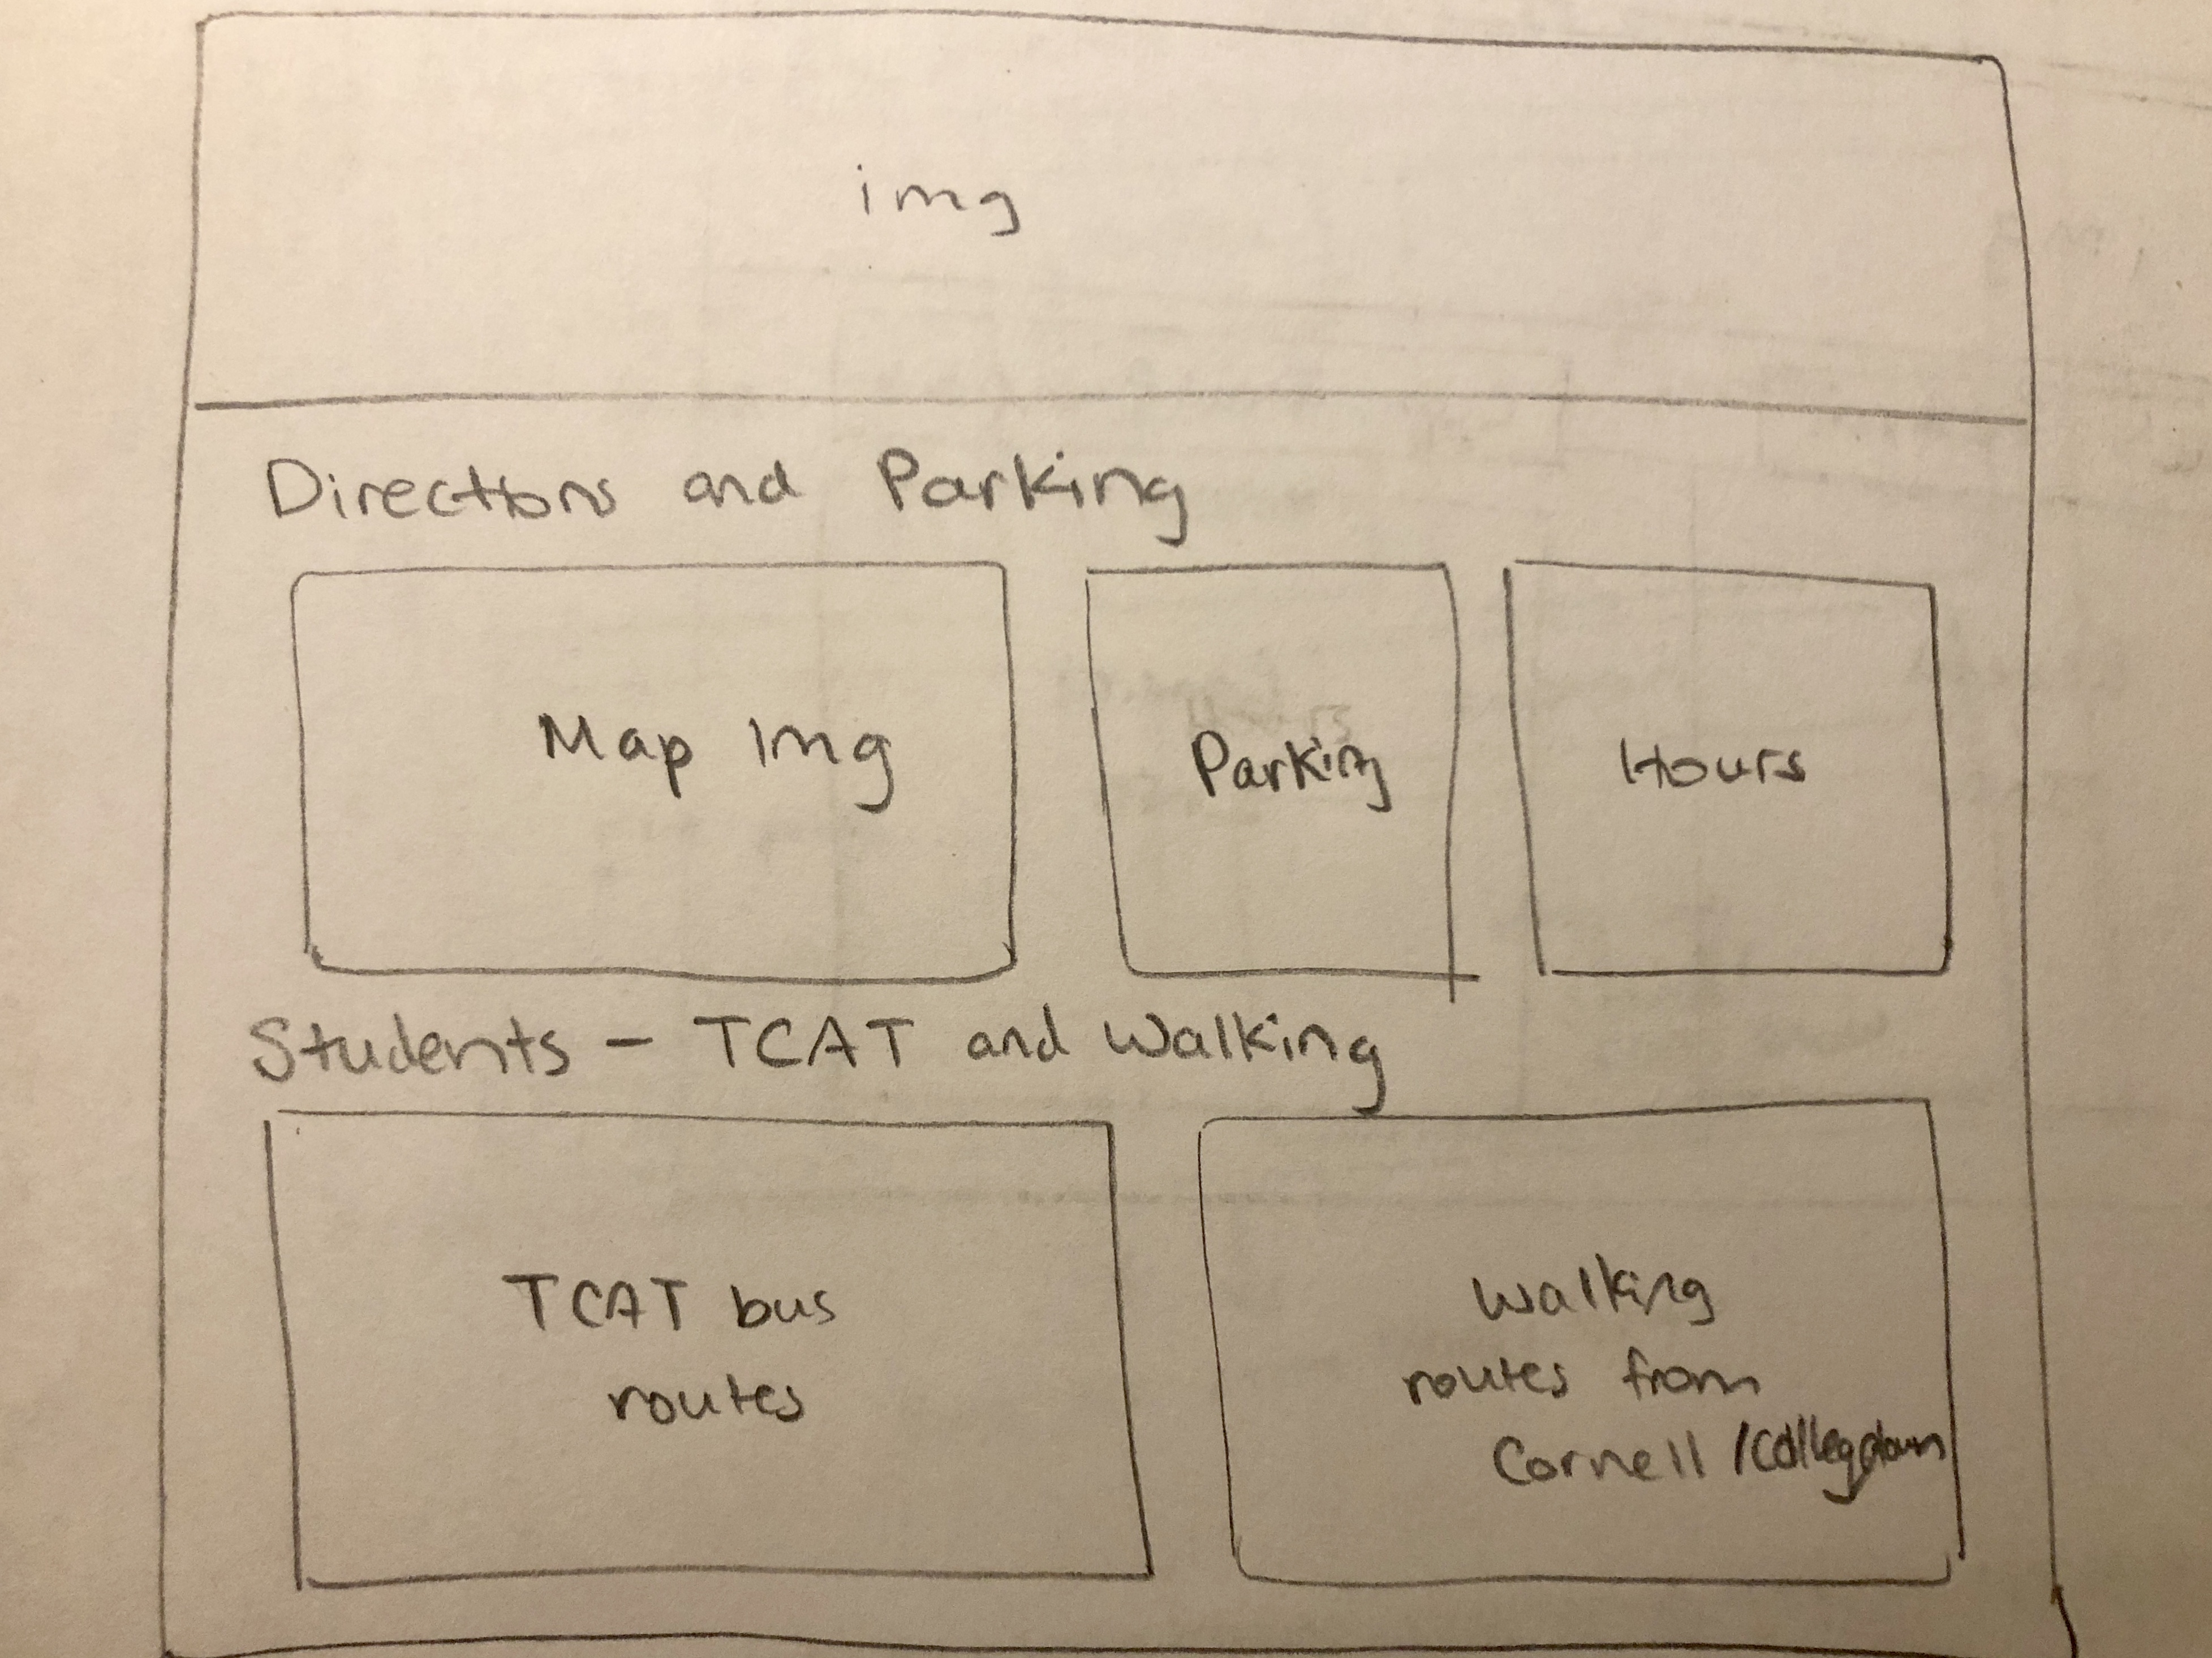 img
Directions and Parking
Map Img
Parking
Hours
Students - TCAT and Walking
TCAT bus
routes
Walking
routes from
Cornell /Collegetown